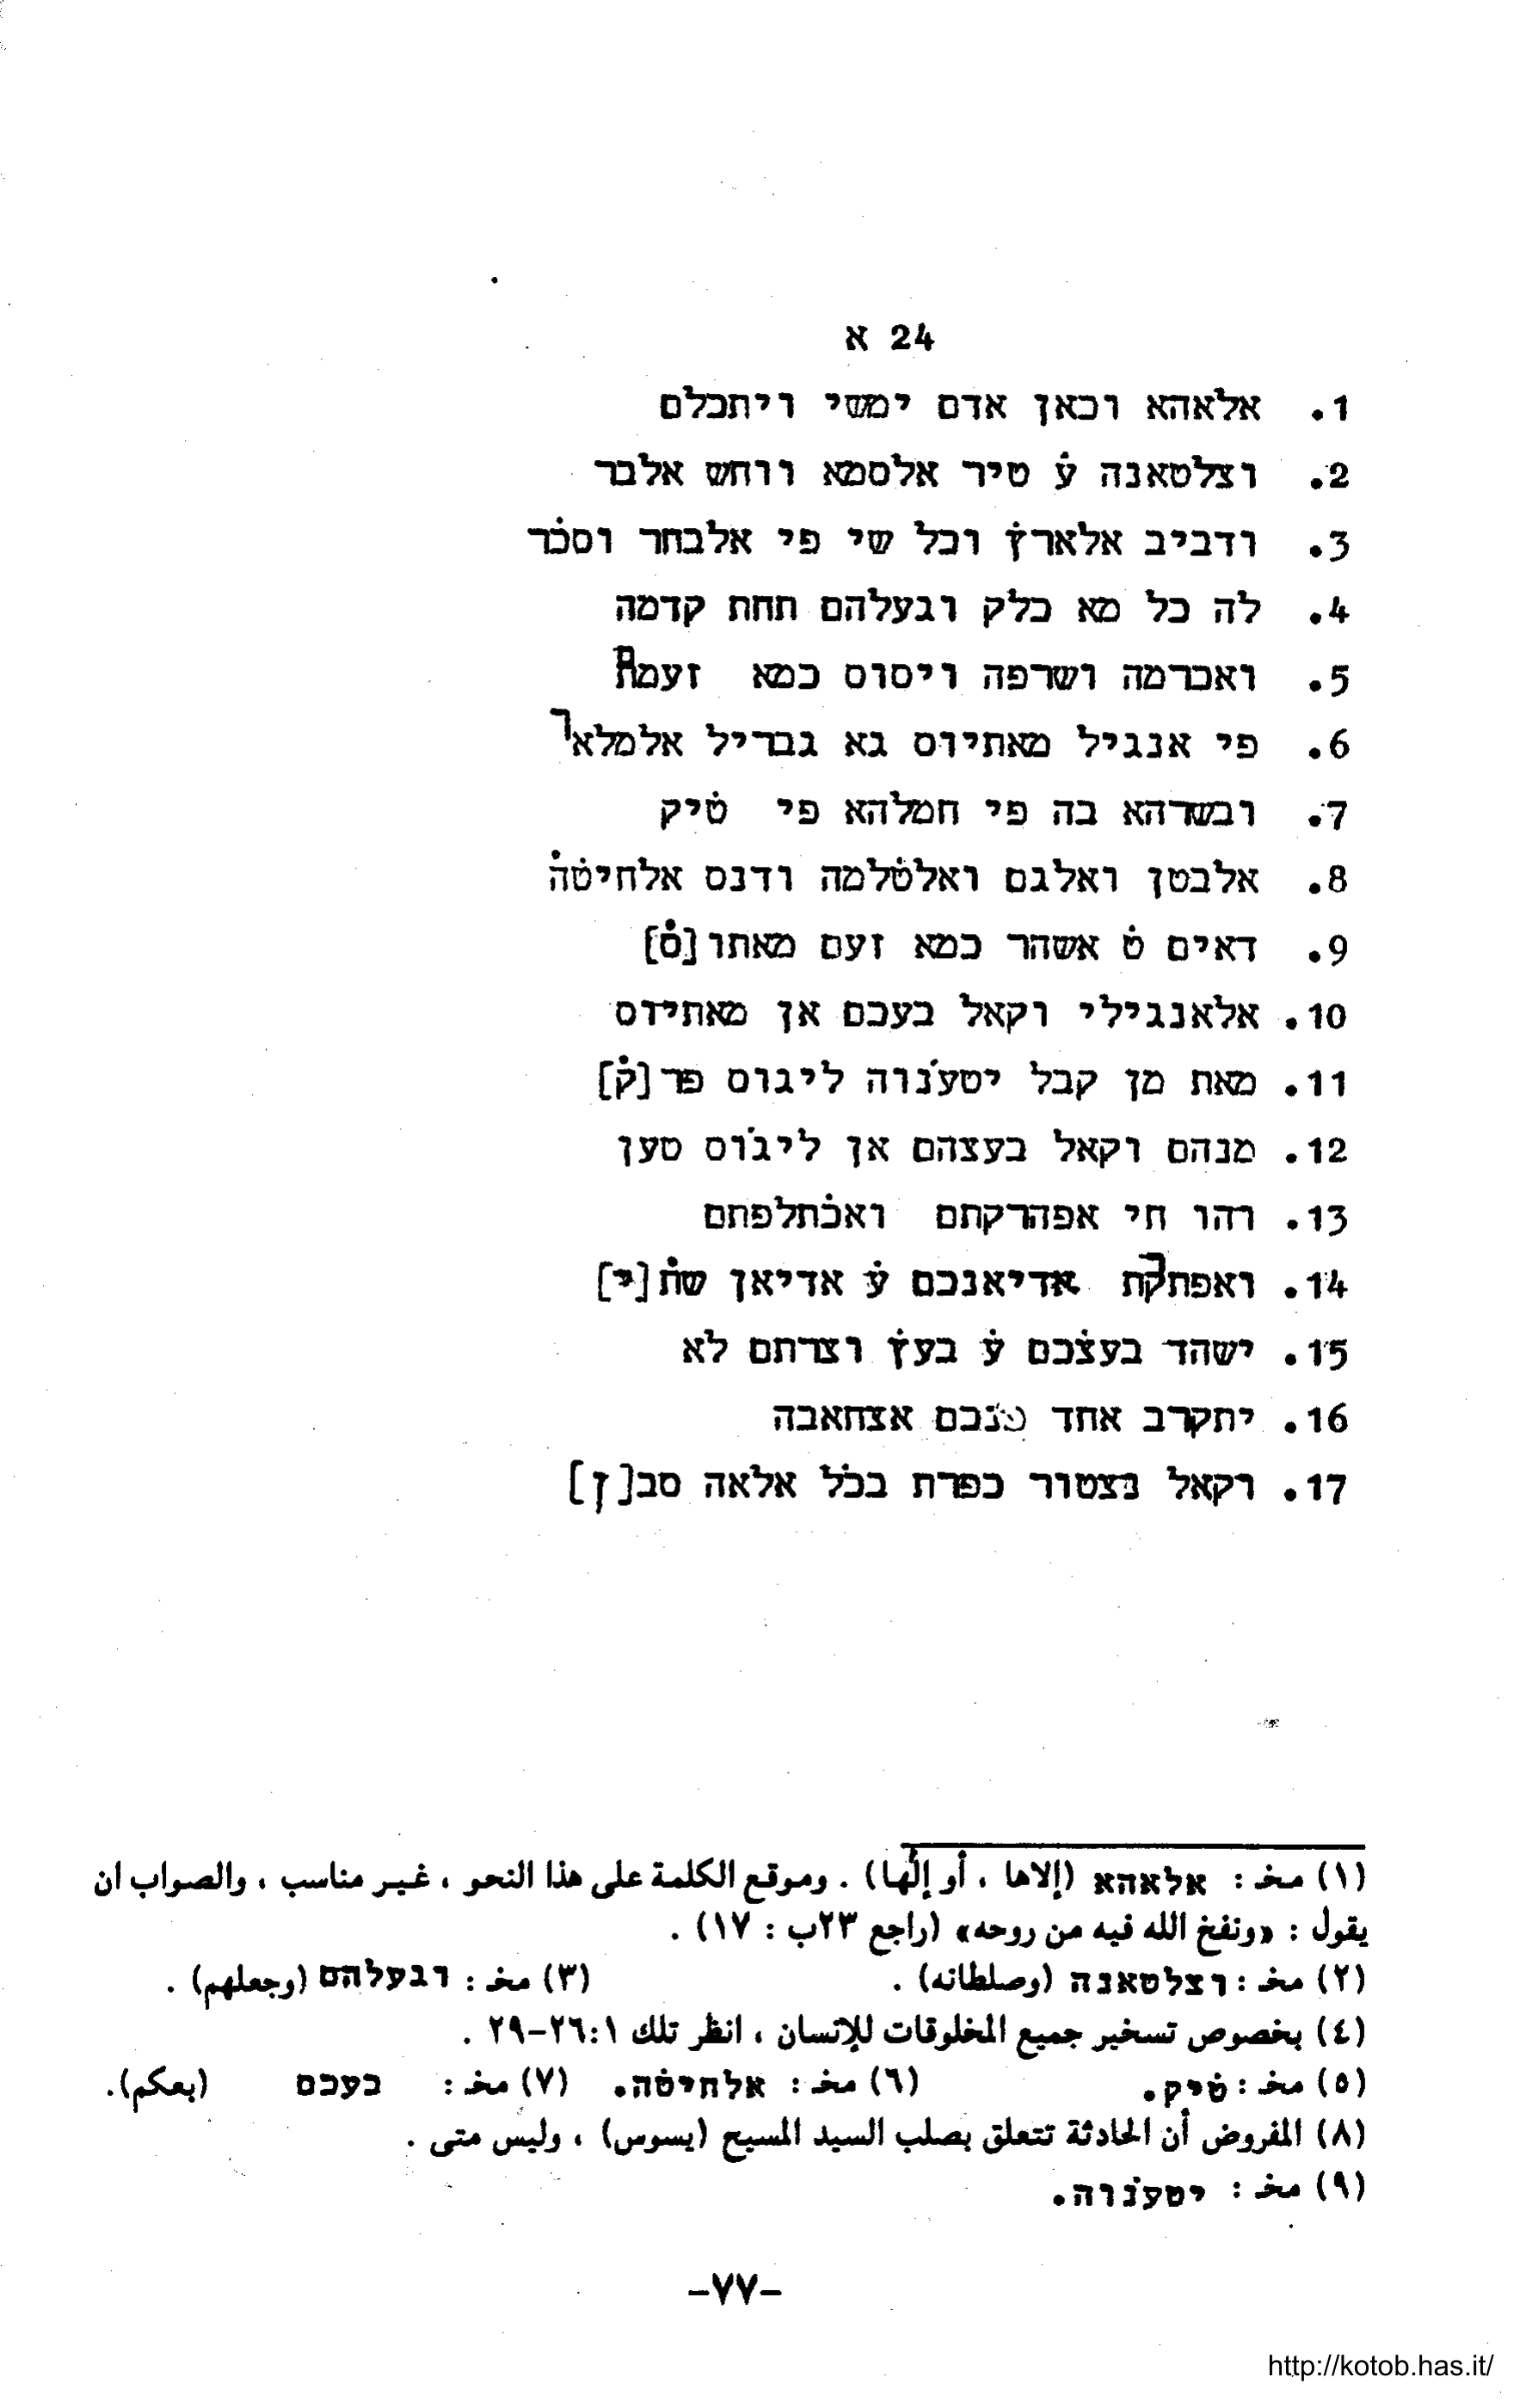 24 א
1. אלאהא וכאן אדם ימשי ויתכלם
2. וצלטאנה עׄ טיר אלסמא ווחש אלבר
3. ודביב אלארץׄ וכל שי פי אלבחר וסכׄר
4. לה כל מא כלק וגעלהם תחת קדמה
5. ואכרמה ושרפה ויסוס כמא זעמת
6. פי אנגיל מאתיוס גא גבריל אלמלאך
7. ובשרהא בה פי חמלהא פי טׄיק
8. אלבטן ואלגם ואלטׄלמה ודנס אלחיטׄהׄ
9. דאים טׄ אשהר כמא זעם מאתו[סׄ]
10. אלאנגילי וקאל בעכם אן מאתיוס
11. מאת מן קבל יטענׄוה ליגוס פר[קׄ]
12. מנהם וקאל בעצהם אן ליגׄוס טען
13. והו חי אפהרקתם ואכׄתלפתם
14. ואפתרקת אדיאנכם עׄ אדיאן שתׄ[י]
15. ישהד בעצׄכם עׄ בעץׄ וצרתם לא
16. יתקרב אחד מנכם אצחאבה
17. וקאל נצטור כפרת בכׄל אלאה סב[ן]
(١) مخـ : אלאהא (إلاها ، أو إلٰها) . وموقع الكلمة على هذا النحو ، غير مناسب ، والصواب ان
يقول : «ونفخ الله فيه من روحه» (راجع ٢٣ب : ١٧) .
(٢) مخـ : וצלטאנה (وصلطانه) . (٣) مخـ : וגעלהם (وجعلهم) .
(٤) بخصوص تسخير جميع المخلوقات للإنسان ، انظر تلك ١:٢٦-٢٩ .
(٥) مخـ : טׄיק. (٦) مخـ : אלחיטׄה. (٧) مخـ : בעכם (بعكم).
(٨) المفروض أن الحادثة تتعلق بصلب السيد المسيح (يسوس) ، وليس متى .
(٩) مخـ : יטענׄוה.
-٧٧-
http://kotob.has.it/